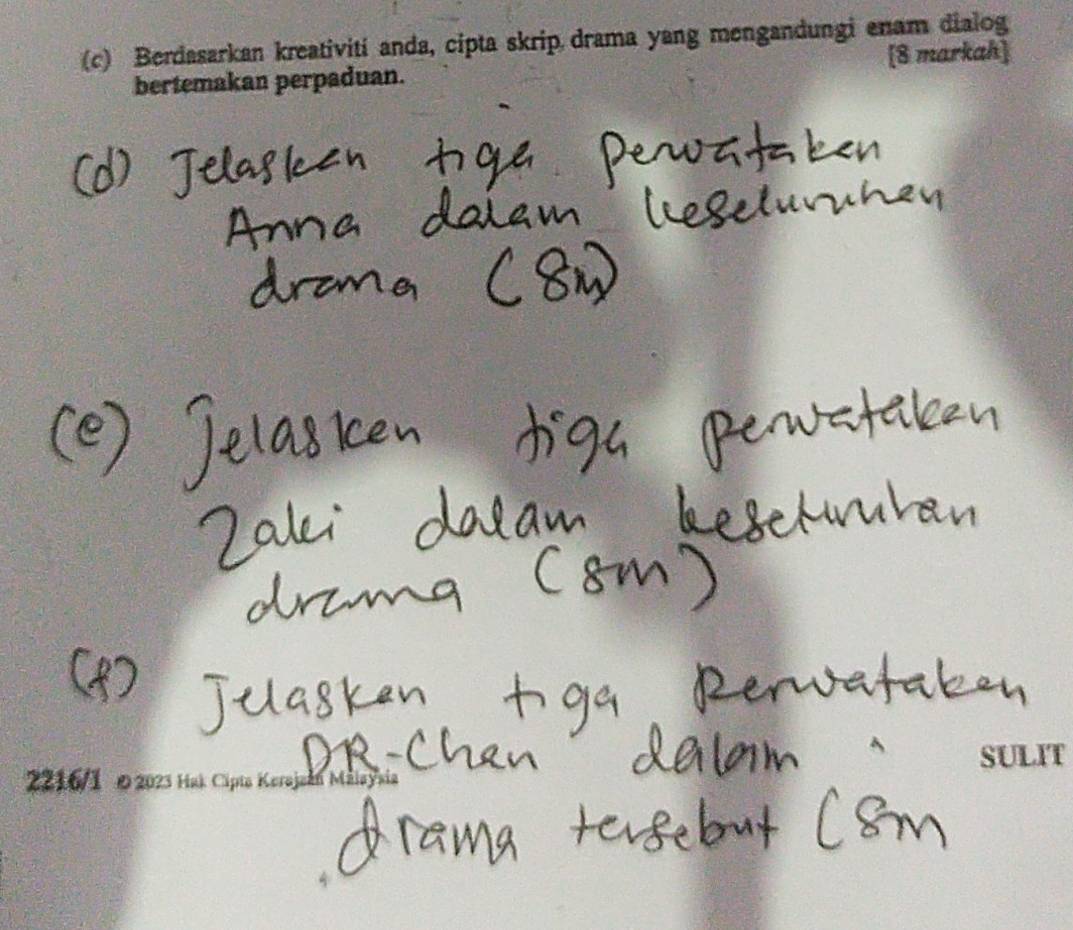 (c) Berdasarkan kreativiti anda, cipta skrip drama yang mengandungi enam dialog
bertemakan perpaduan.
[8 markah]
(d) Jelaskan tiga perwatakan
Anna dalam keseluruhan
drama (8m)
(e) Jelaskan tiga perwatakan
Zaki dalam keseluruhan
drama (8m)
(f) Jelaskan tiga perwatakan
DR-Chan dalam
SULIT
2216/1 © 2023 Hak Cipta Kerajaan Malaysia
drama tersebut (8m